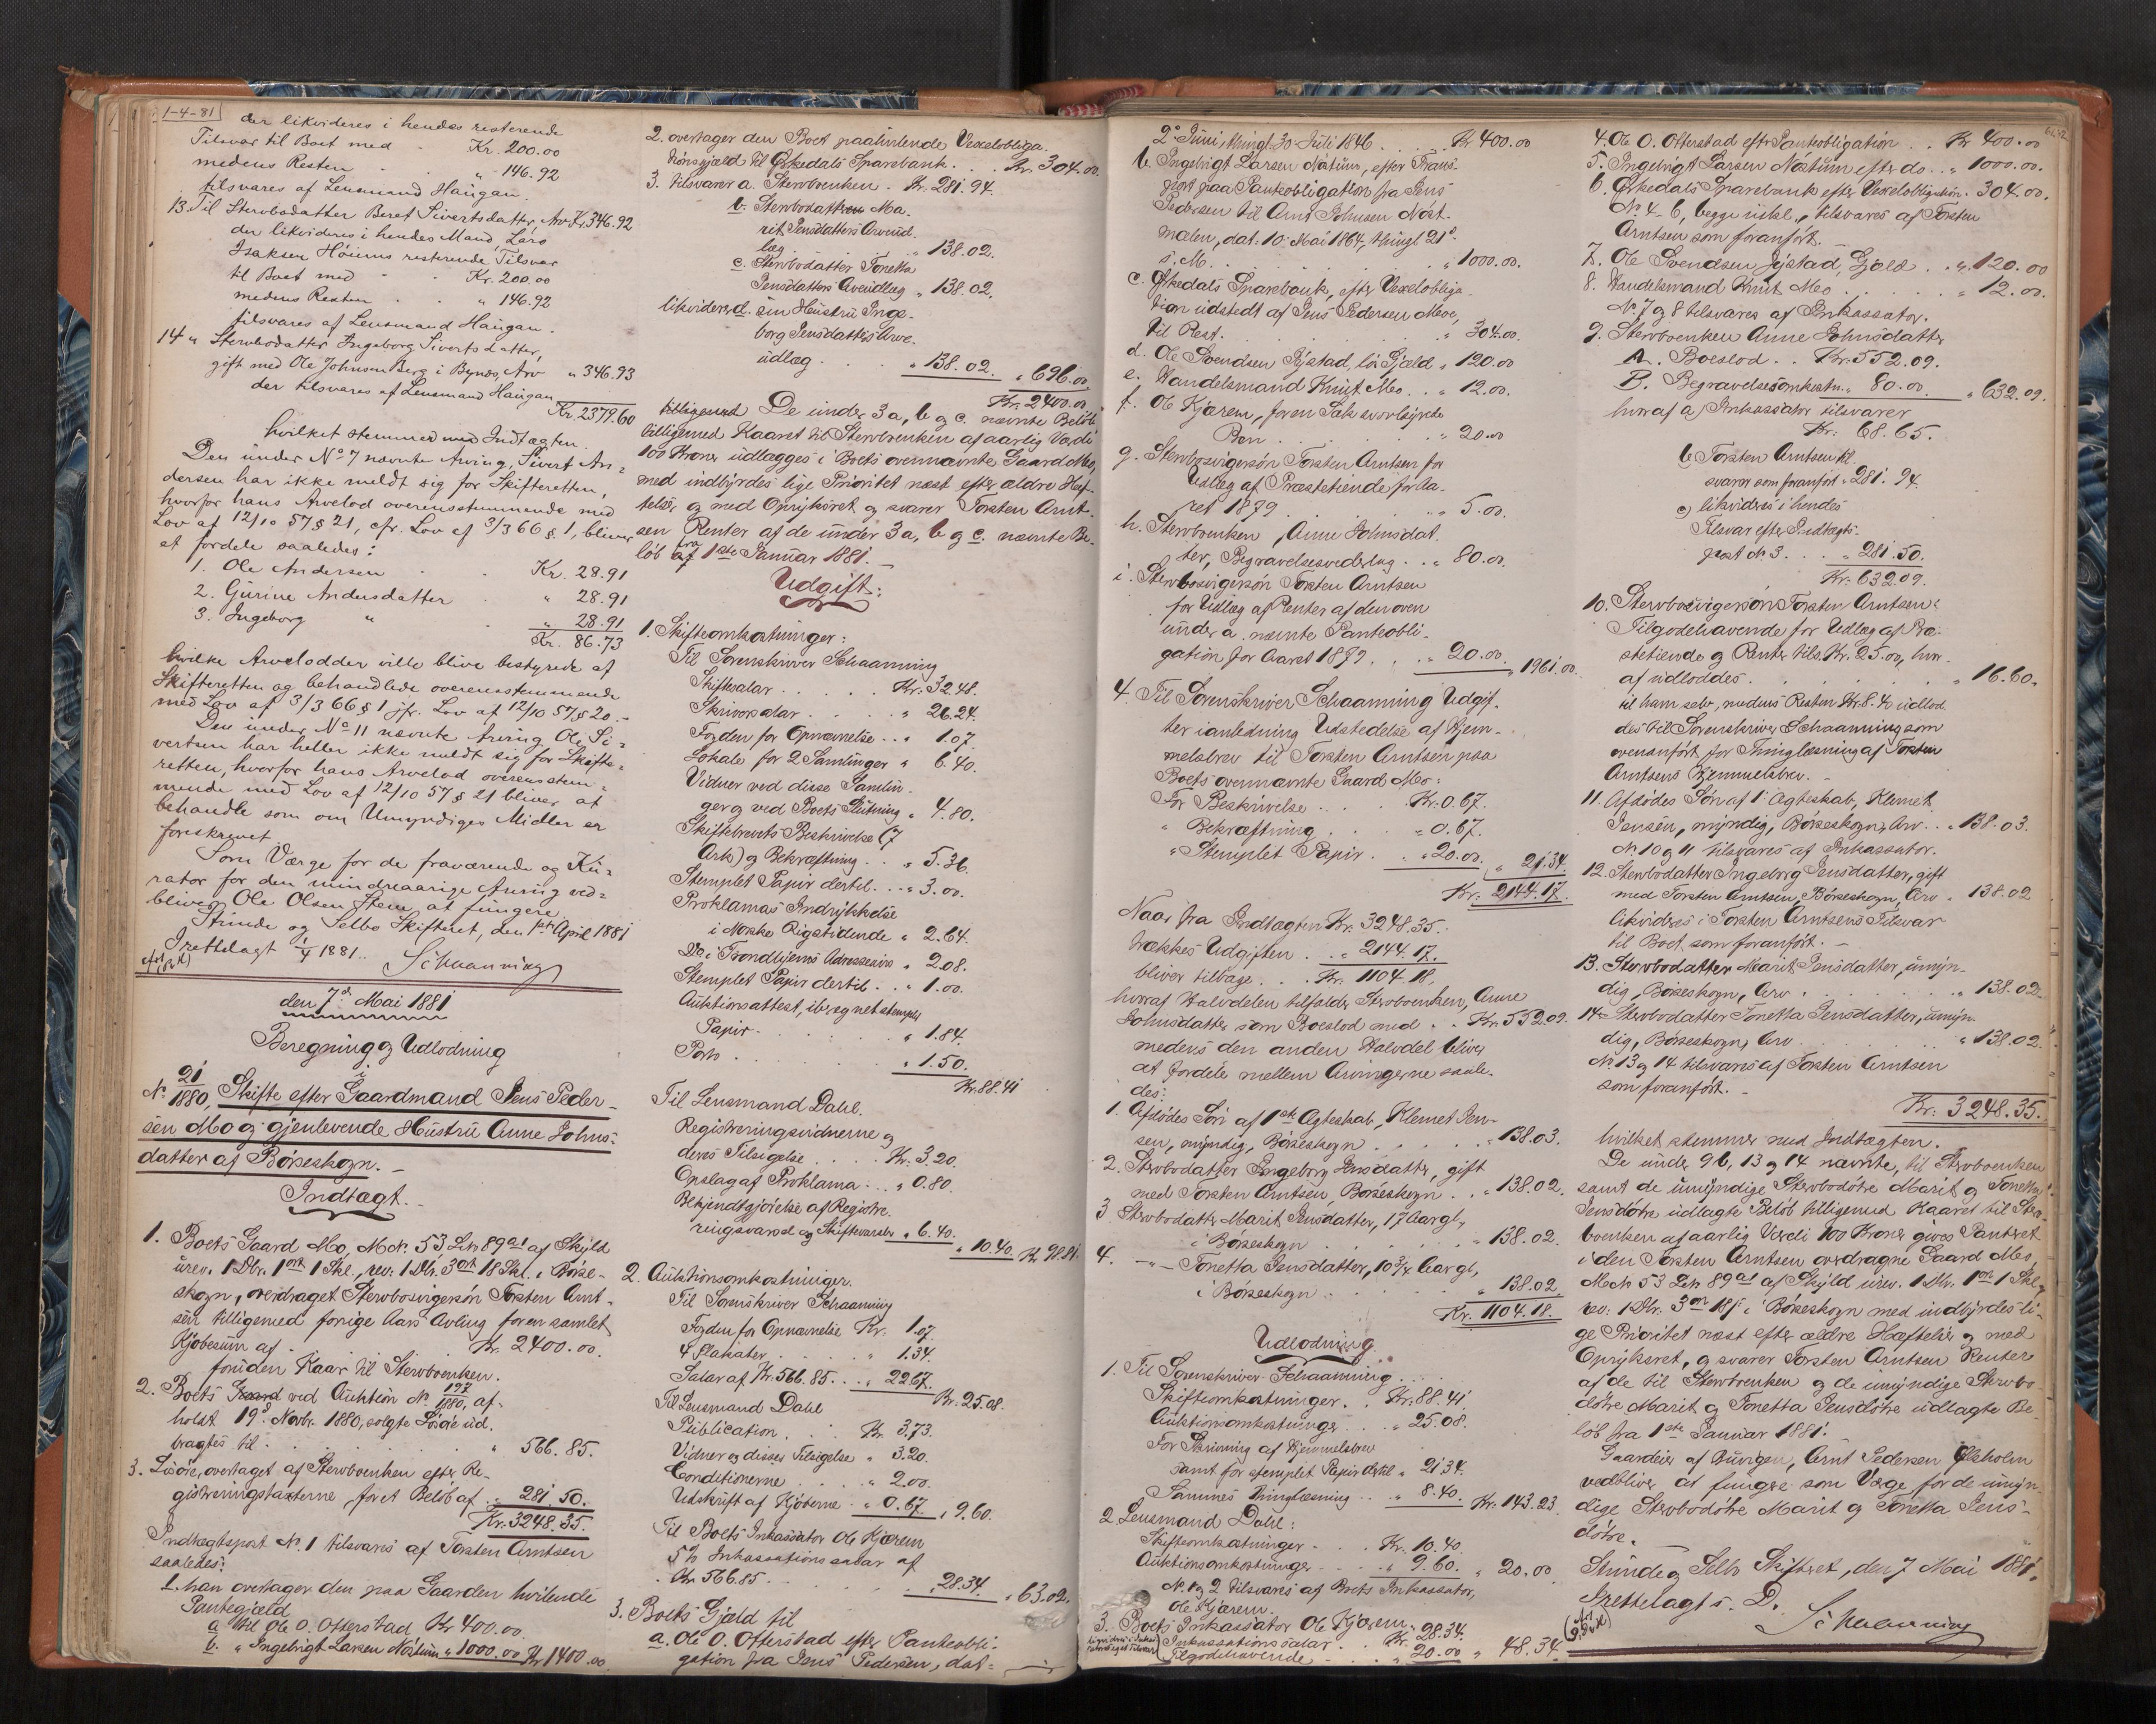 1-4-81
der likvideres i hendes resterende
Tilsvar til Boet med " Kr. 200.00
medens Resten . . " 146.92
tilsvares af Lensmand Haugan.
13. Til Sterbodatter Beret Sivertsdatter, Arv Kr. 346.92
der likvideres i hendes Mand, Lars
Isaksen Höiums resterende Tilsvar
til Boet med " Kr. 200.00
medens Resten . . " 146.92
tilsvares af Lensmand Haugan.
14 " Sterbodatter Ingeborg Sivertsdatter,
gift med Ole Johnsen Berg i Bynæs, Arv " 346.93
der tilsvares af Lensmand Haugan
Kr. 2379.60
hvilket stemmer med Indtægten.
Den under No 7 nævnte Arving, Sivert An-
dersen har ikke meldt sig for Skifteretten,
hvorfor hans Arvelod overensstemmende med
Lov af 12/10 57 § 21, cfr. Lov af 3/3 66 § 1, bliver
at fordele saaledes:
1. Ole Andersen . . Kr. 28.91
2. Gurine Andersdatter . " 28.91
3. Ingeborg " . " 28.91
Kr. 86.73
hvilke Arvelodder ville blive bestyrede af
Skifteretten og behandlede overensstemmende
med Lov af 3/3 66 § 1 jfr. Lov af 12/10 57 § 20.-
Den under No 11 nævnte Arving Ole Si-
vertsen har heller ikke meldt sig for Skifte-
retten, hvorfor hans Arvelod overensstem-
mende med Lov af 12/10 57 § 21 bliver at
behandle som om Umyndiges Midler er
foreskrevet.
Som Værge for de fraværende og Ku-
rator for den mindreaarige Arving ved-
bliver Ole Olsen Stem at fungere.
Strinde og Selbo Skifteret, den 1ste April 1881
Irettelagt 1/4 1881.
Schaanning
den 7de Mai 1881
Beregning og Udlodning
i
No 21/1880, Skifte efter Gaardmand Jens Peder-
sen Mo og gjenlevende Hustru Anne Johns-
datter af Börseskogn.-
Indtægt.-
1. Boets Gaard Mo, M.No. 53, L.No 89a1 af Skyld
urev. 1 Dlr. 1 ort 1 Skl., rev. 1 Dlr. 3 ort 18 Skl. i Börse-
skogn, overdraget Sterbosvigersön Torsten Arnt-
sen tilligemed forrige Aars Avling for en samlet
Kjöbesum af . . Kr. 2400.00.
foruden Kaar til Sterboenken.
2. Boets Gaard ved Auktion No. 197/1880, af-
holdt 19de Novbr. 1880, solgte Lösöre ud-
bragtes til . . . " 566.85.
3. Lösöre, overtaget af Sterboenken efter Re-
gistreringstaxterne, for et Belöb af " 281.50.
Kr. 3248.35.
Indtægtspost No. 1 tilsvares af Torsten Arntsen
saaledes:
1. han overtager den paa Gaarden hvilende
Pantegjæld
a til Ole O. Otterstad Kr 400.00.
b. " Ingebrigt Larsen Nöstum " 1000.00 Kr 1400.00.
2. overtager den Boet paahvilende Vexelobliga-
tionsgjæld til Örkedals Sparebank . . Kr. 304.00.
3. tilsvarer a. Sterboenken . Kr. 281.94.
b. Sterbodatteren Ma-
rit Jensdatters Arveud-
læg . . " 138.02.
c. Sterbodatter Tonetta
Jensdatters Arveudlæg " 138.02.
likviderer d. sin Hustru Inge-
borg Jensdatters Arve-
udlæg . . " 138.02. " 696.00
Kr. 2400.00
tilligemed De under 3 a, b og c. nævnte Belöb
tilligemed Kaaret til Sterboenken af aarlig Værdi
100 Kroner udlægges i Boets ovennævnte Gaard Mo,
med indbyrdes lige Prioritet næst efter ældre Hæf-
telser og med Opryksret og svarer Torsten Arnt-
sen Renter af de under 3 a, b og c. nævnte Be-
löb af fra 1ste Januar 1881.-
Udgift:
1. Skifteomkostninger:
Til Sorenskriver Schaanning
Skiftesalar . . . . Kr. 32.48.
Skriversalar . . . . " 26.24.
Fogden for Opnævnelse . . " 1.07.
Lokale for 2 Samlinger " 6.40.
Vidner ved disse Samlin-
ger og ved Boets Slutning " 4.80.
Skiftebrevets Beskrivelse (7
Ark) og Bekræftning . . " 5.36.
Stemplet Papir dertil . . . " 3.00.
Proklamas Indrykkelse
i Norske Rigstidende " 2.64.
Do. i Trondhjems Adresseavis " 2.08.
Stemplet Papir dertil . . " 1.00.
Auktionsattest, iberegnet stemplet
Papir . . . " 1.84.
Porto . . . " 1.50.
Kr. 88.41
Til Lensmand Dahl.
Registreringsvidnerne og
deres Tilsigelse . . . Kr. 3.20.
Opslag af Proklama . . " 0.80.
Bekjendtgjörelse af Registre-
ringsvarsel og Skiftevarsler " 6.40.
" 10.40. Kr. 98.81.
2. Auktionsomkostninger.
Til Sorenskriver Schaanning
Fogden for Opnævnelse Kr. 1.07.
4 Plakater . . . . " 1.34.
Salar af Kr. 566.85. . . " 22.67.
Kr. 25.08.
Til Lensmand Dahl
Publication . . . Kr. 3.73.
Vidner og disses Tilsigelse " 3.20.
Conditionerne . . . " 2.00.
Udskrift af Kjöberne . . " 0.67. " 9.60.
Til Boets Inkassator Ole Kjærem
5 % Inkassationssalar af
Kr. 566.85. . . . " 28.34. " 63.02.
3. Boets Gjæld til
a. Ole O. Otterstad efter Panteobli-
gation fra Jens Pedersen, dat-
2. Juni, thingl. 30 Juli 1846 . . . Kr 400.00
b. Ingebrigt Larsen Nöstum, efter Trans-
port paa Panteobligation fra Jens
Pedersen til Arnt Johnsen Nöst-
mælen, dat. 10. Mai 1864, thingl. 21de
s. M. . . . " 1000.00.
c. Örkedals Sparebank, efter Vexelobliga-
tion udstedt af Jens Pedersen Moe,
til Rest. . . . " 304.00.
d. Ole Svendsen Jystad, lös Gjæld " 120.00
e. Handelsmand Knut Meo . . " 12.00.
f. Ole Kjærem, for en Sak svovlsyrede
Ben . . . " 20.00
g. Sterbosvigersön Torsten Arntsen for
Udlæg af Præstetiende for Aa-
ret 1879 . . . " 5.00.
h. Sterboenken, Anne Johnsdat-
ter, Begravelsesvederlag . . " 80.00.
i. Sterbosvigersön Torsten Arntsen
for Udlæg af Renter af den oven
under a. nævnte Panteobli-
gation, for Aaret 1879. . . " 20.00. " 1961.00.
4. Til Sorenskriver Schaanning Udgif-
ter ianledning Udstedelse af Hjem-
melsbrev til Torsten Arntsen paa
Boets ovennævnte Gaard Mo:
For Beskrivelse . . Kr. 0.67.
" Bekræftning . . " 0.67.
" Stemplet Papir . . " 20.00. " 21.34.
Kr. 2144.17.
Naar fra Indtægten Kr. 3248.35.
trækkes Udgiften . . " 2144.17.
bliver tilbage . . Kr. 1104.18.
hvoraf Halvdelen tilfalder Sterboenken, Anne
Johnsdatter som Boeslod med . . Kr. 552.09.
medens den anden Halvdel bliver
at fordele mellem Arvingerne saale-
des:
1. Afdödes Sön af 1ste Ægteskab, Klemet Jen-
sen, myndig, Börseskogn . . . " 138.03.
2. Sterbodatter Ingeborg Jensdatter, gift
med Torsten Arntsen, Börseskogn . . " 138.02.
3 Sterbodatter Marit Jensdatter, 17 Aar gl,
i Börseskogn . . . " 138.02.
4. -"- Tonetta Jensdatter, 10 3/4 Aar gl,
i Börseskogn . . . " 138.02.
Kr. 1104.18.
Udlodning
1. Til Sorenskriver Schaanning . . .
Skifteomkostninger . . Kr. 88.41
Auktionsomkostninger . . " 25.08.
For Skrivning af Hjemmelsbrev
samt for stemplet Papir dertil " 21.34.
Sammes Thinglæsning . . " 8.40. Kr. 143.23
2. Lensmand Dahl:
Skifteomkostninger . . . Kr. 10.40.
Auktionsomkostninger . . " 9.60. " 20.00.
No. 1 og 2 tilsvares af Boets Inkassator,
Ole Kjærem.
3. Boets Inkassator Ole Kjærem.
Inkassationssalar . . Kr. 28.34.
Tilgodehavende . . . " 20.00 " 48.34.
4. Ole O. Otterstad efter Panteobligation . . Kr 400.00
5. Ingebrigt Larsen Nöstum efter do. . . " 1000.00.
6. Örkedals Sparebank efter Vexelobligation . 304.00.
No. 4-6, begge inkl., tilsvares af Torsten
Arntsen som foranfört.
7. Ole Svendsen Jystad, Gjæld . . " 120.00
8. Handelsmand Knut Meo . . . " 12.00.
No. 7 og 8 tilsvares af Inkassator.
9. Sterboenken Anne Johnsdatter
A. Boeslod . . Kr. 552.09.
B. Begravelsesomkostn. " 80.00. " 632.09.
hvoraf a, Inkassator tilsvarer
Kr. 68.65.
b Torsten Arntsen til-
svarer som foranfört " 281.94.
c, likvideres i hendes
Tilsvar efter Indtægts-
post No 3. . . " 281.50.
Kr. 632.09.
10. Sterbosvigersöns Torsten Arntsens
Tilgodehavende for Udlæg af Præ-
stetiende og Renter tils. Kr. 25.00, hvor-
af udloddes . . . " 16.60.
til ham selv, medens Resten Kr. 8.40 udlod-
des til Sorenskriver Schaanning som
ovenanfört for Thinglæsning af Torsten
Arntsens Hjemmelsbrev.-
11. Afdödes Sön af 1. Ægteskab, Klemet
Jensen, myndig, Börseskogn, Arv . . " 138.03.
No. 10 og 11 tilsvares af Inkassator.
12. Sterbodatter Ingeborg Jensdatter, gift
med Torsten Arntsen, Börseskogn, Arv " 138.02
likvideres i Torsten Arntsens Tilsvar
til Boet som foranfört.-
13. Sterbodatter Marit Jensdatter, umyn-
dig, Börseskogn, Arv . . . " 138.02.
14. Sterbodatter Tonetta Jensdatter, umyn-
dig, Börseskogn, Arv . . . " 138.02.
No. 13 og 14 tilsvares af Torsten Arntsen
som foranfört.-
Kr. 3248.35.
hvilket stemmer med Indtægten.
De under 9 b, 13 og 14 nævnte, til Sterboenken
samt de umyndige Sterbodötre Marit og Tonetta
Jensdötre udlagte Belöb tilligemed Kaaret til Ster-
boenken af aarlig Værdi 100 Kroner gives Panteret
i den Torsten Arntsen overdragne Gaard Mo,
M.No. 53 L.No 89a1 af Skyld urev. 1 Dlr. 1 ort 1 Skl.,
rev. 1 Dlr. 3 ort 18 s i Börseskogn med indbyrdes li-
ge Prioritet næst efter ældre Hæftelser og med
Opryksret, og svarer Torsten Arntsen Renter
af de til Sterboenken og de umyndige Sterbo-
dötre Marit og Tonetta Jensdötre udlagte Be-
löb fra 1ste Januar 1881.
Gaardeier af Viggen, Arnt Pedersen Ölsholm
vedbliver at fungere som Værge for de umyn-
dige Sterbodötre Marit og Tonetta Jens-
dötre.-
Strinde og Selbo Skifteret, den 7 Mai 1881.
Irettelagt s. D.
Schaanning